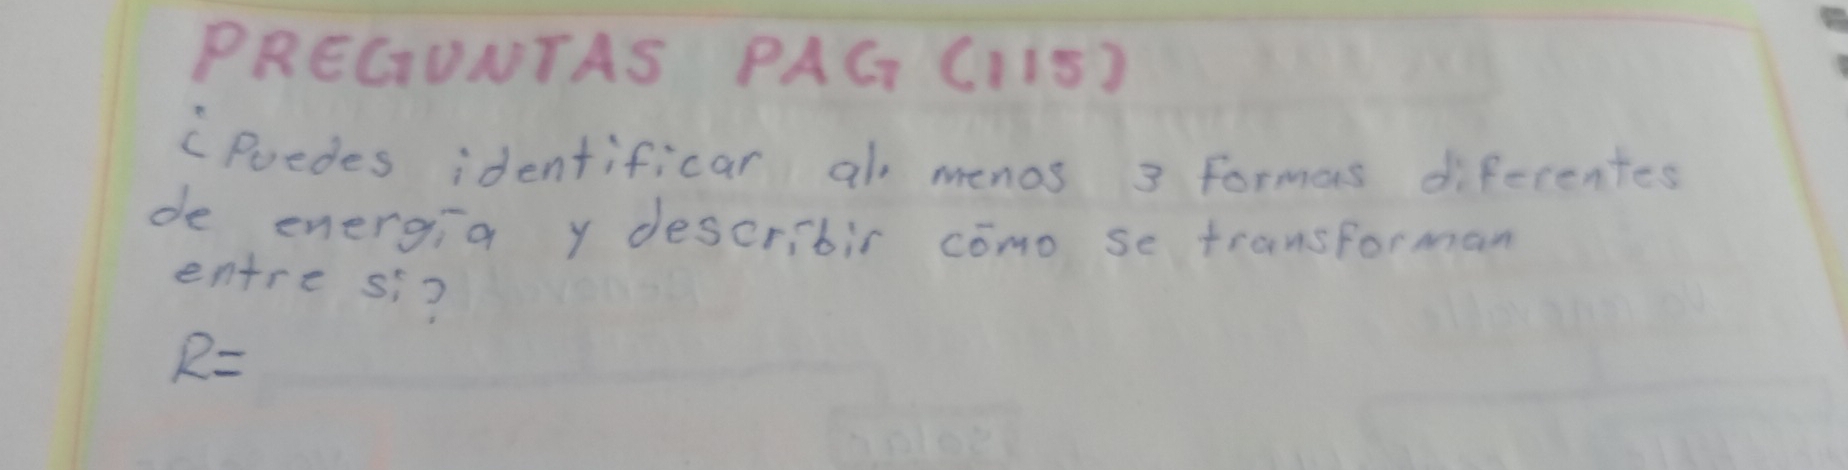 PREGUNTAS PAG (115)
¿Puedes identificar al menos 3 formas diferentes
de energía y describir cómo se transforman
entre si?
R=